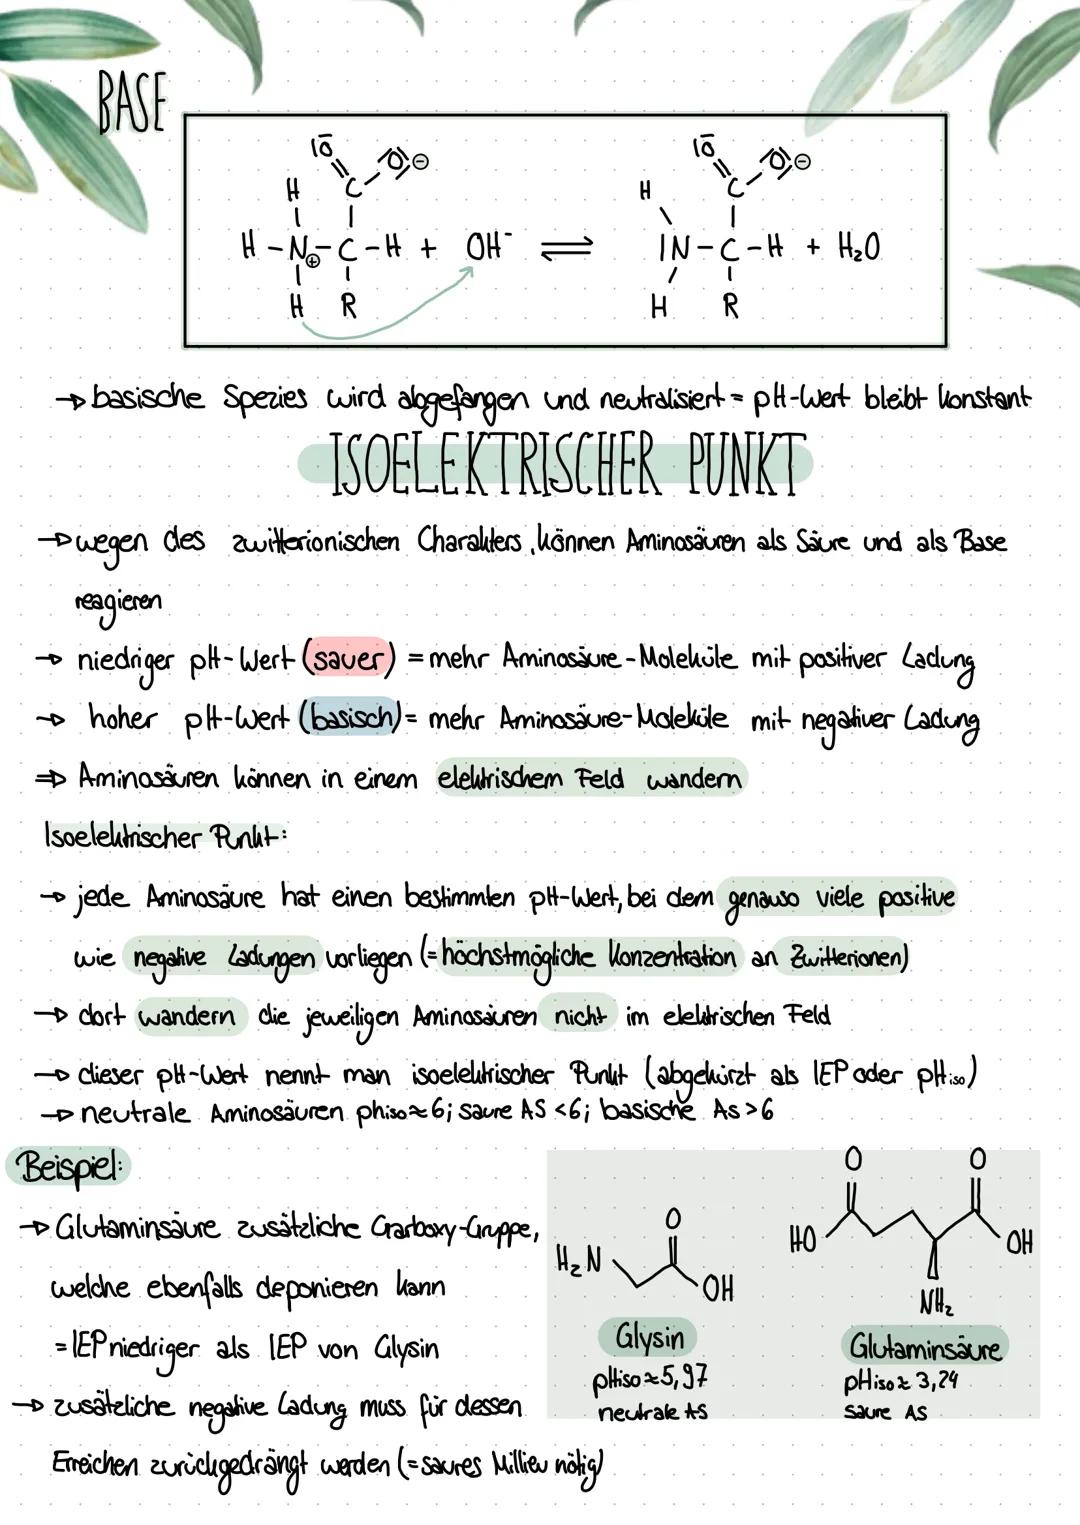 BASE
H-N⊕-C-H + OH⁻ ⇌ IN-C-H + H₂O
H R H R
→ basische Spezies wird abgefangen und neutralisiert = pH-Wert bleibt konstant
ISOELEKTRISCHER PUNKT
→ wegen des zwitterionischen Charakters, können Aminosäuren als Säure und als Base
reagieren
→ niedriger pH-Wert (sauer) = mehr Aminosäure-Moleküle mit positiver Ladung
→ hoher pH-Wert (basisch) = mehr Aminosäure-Moleküle mit negativer Ladung
⇒ Aminosäuren können in einem elektrischem Feld wandern
Isoelektrischer Punkt:
→ jede Aminosäure hat einen bestimmten pH-Wert, bei dem genauso viele positive
wie negative Ladungen vorliegen (= höchstmögliche Konzentration an Zwitterionen)
→ dort wandern die jeweiligen Aminosäuren nicht im elektrischen Feld
→ dieser pH-Wert nennt man isoelektrischer Punkt (abgekürzt als IEP oder pHiso)
→ neutrale Aminosäuren phiso≈6; saure AS <6; basische As >6
Beispiel:
→ Glutaminsäure zusätzliche Crarboxy-Gruppe,
welche ebenfalls deponieren kann
= IEP niedriger als IEP von Glysin
→ zusätzliche negative Ladung muss für dessen
Erreichen zurückgedrängt werden (= saures Millieu nötig)
O
H₂N OH
Glysin
pHiso≈5,97
neutrale AS
O O
HO OH
NH₂
Glutaminsäure
pHiso≈ 3,24
saure AS